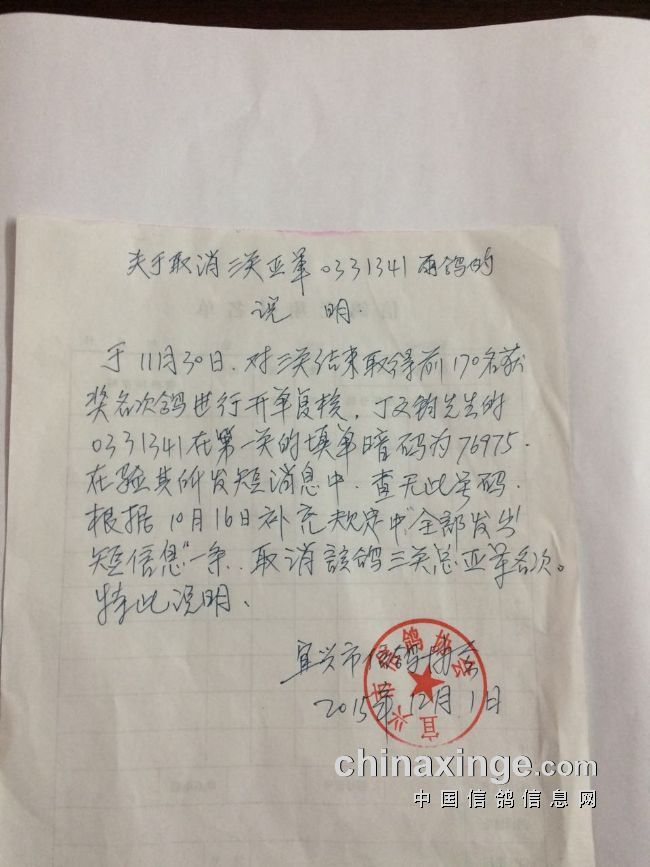 关于取消三关亚军0331341雨鸽的
说 明
于11月30日.对三关结束取得前170名获
奖名次鸽进行开单复核,丁文钧先生的
0331341在第一关的填单暗码为76975.
在验其所发短消息中.查无此号码.
根据10月16日补充规定中"全部发出
短信息"一条.取消該鸽三关总亚军名次。
特此说明.
宜兴市信鸽协会
2015年12月1日
宜兴市信鸽协会
chinaxinge.com
中国信鸽信息网